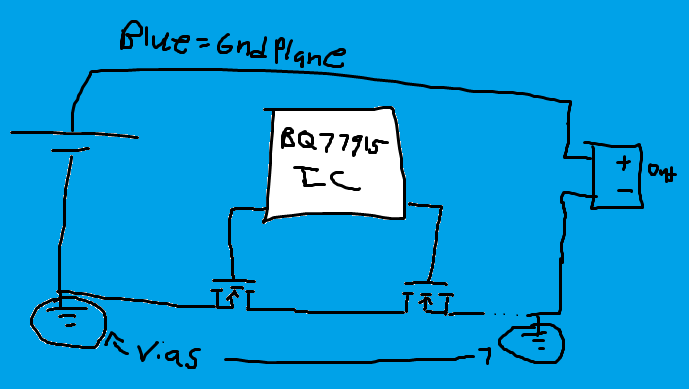 Blue = Gnd Plane
BQ77915
IC
+
Out
-
Vias